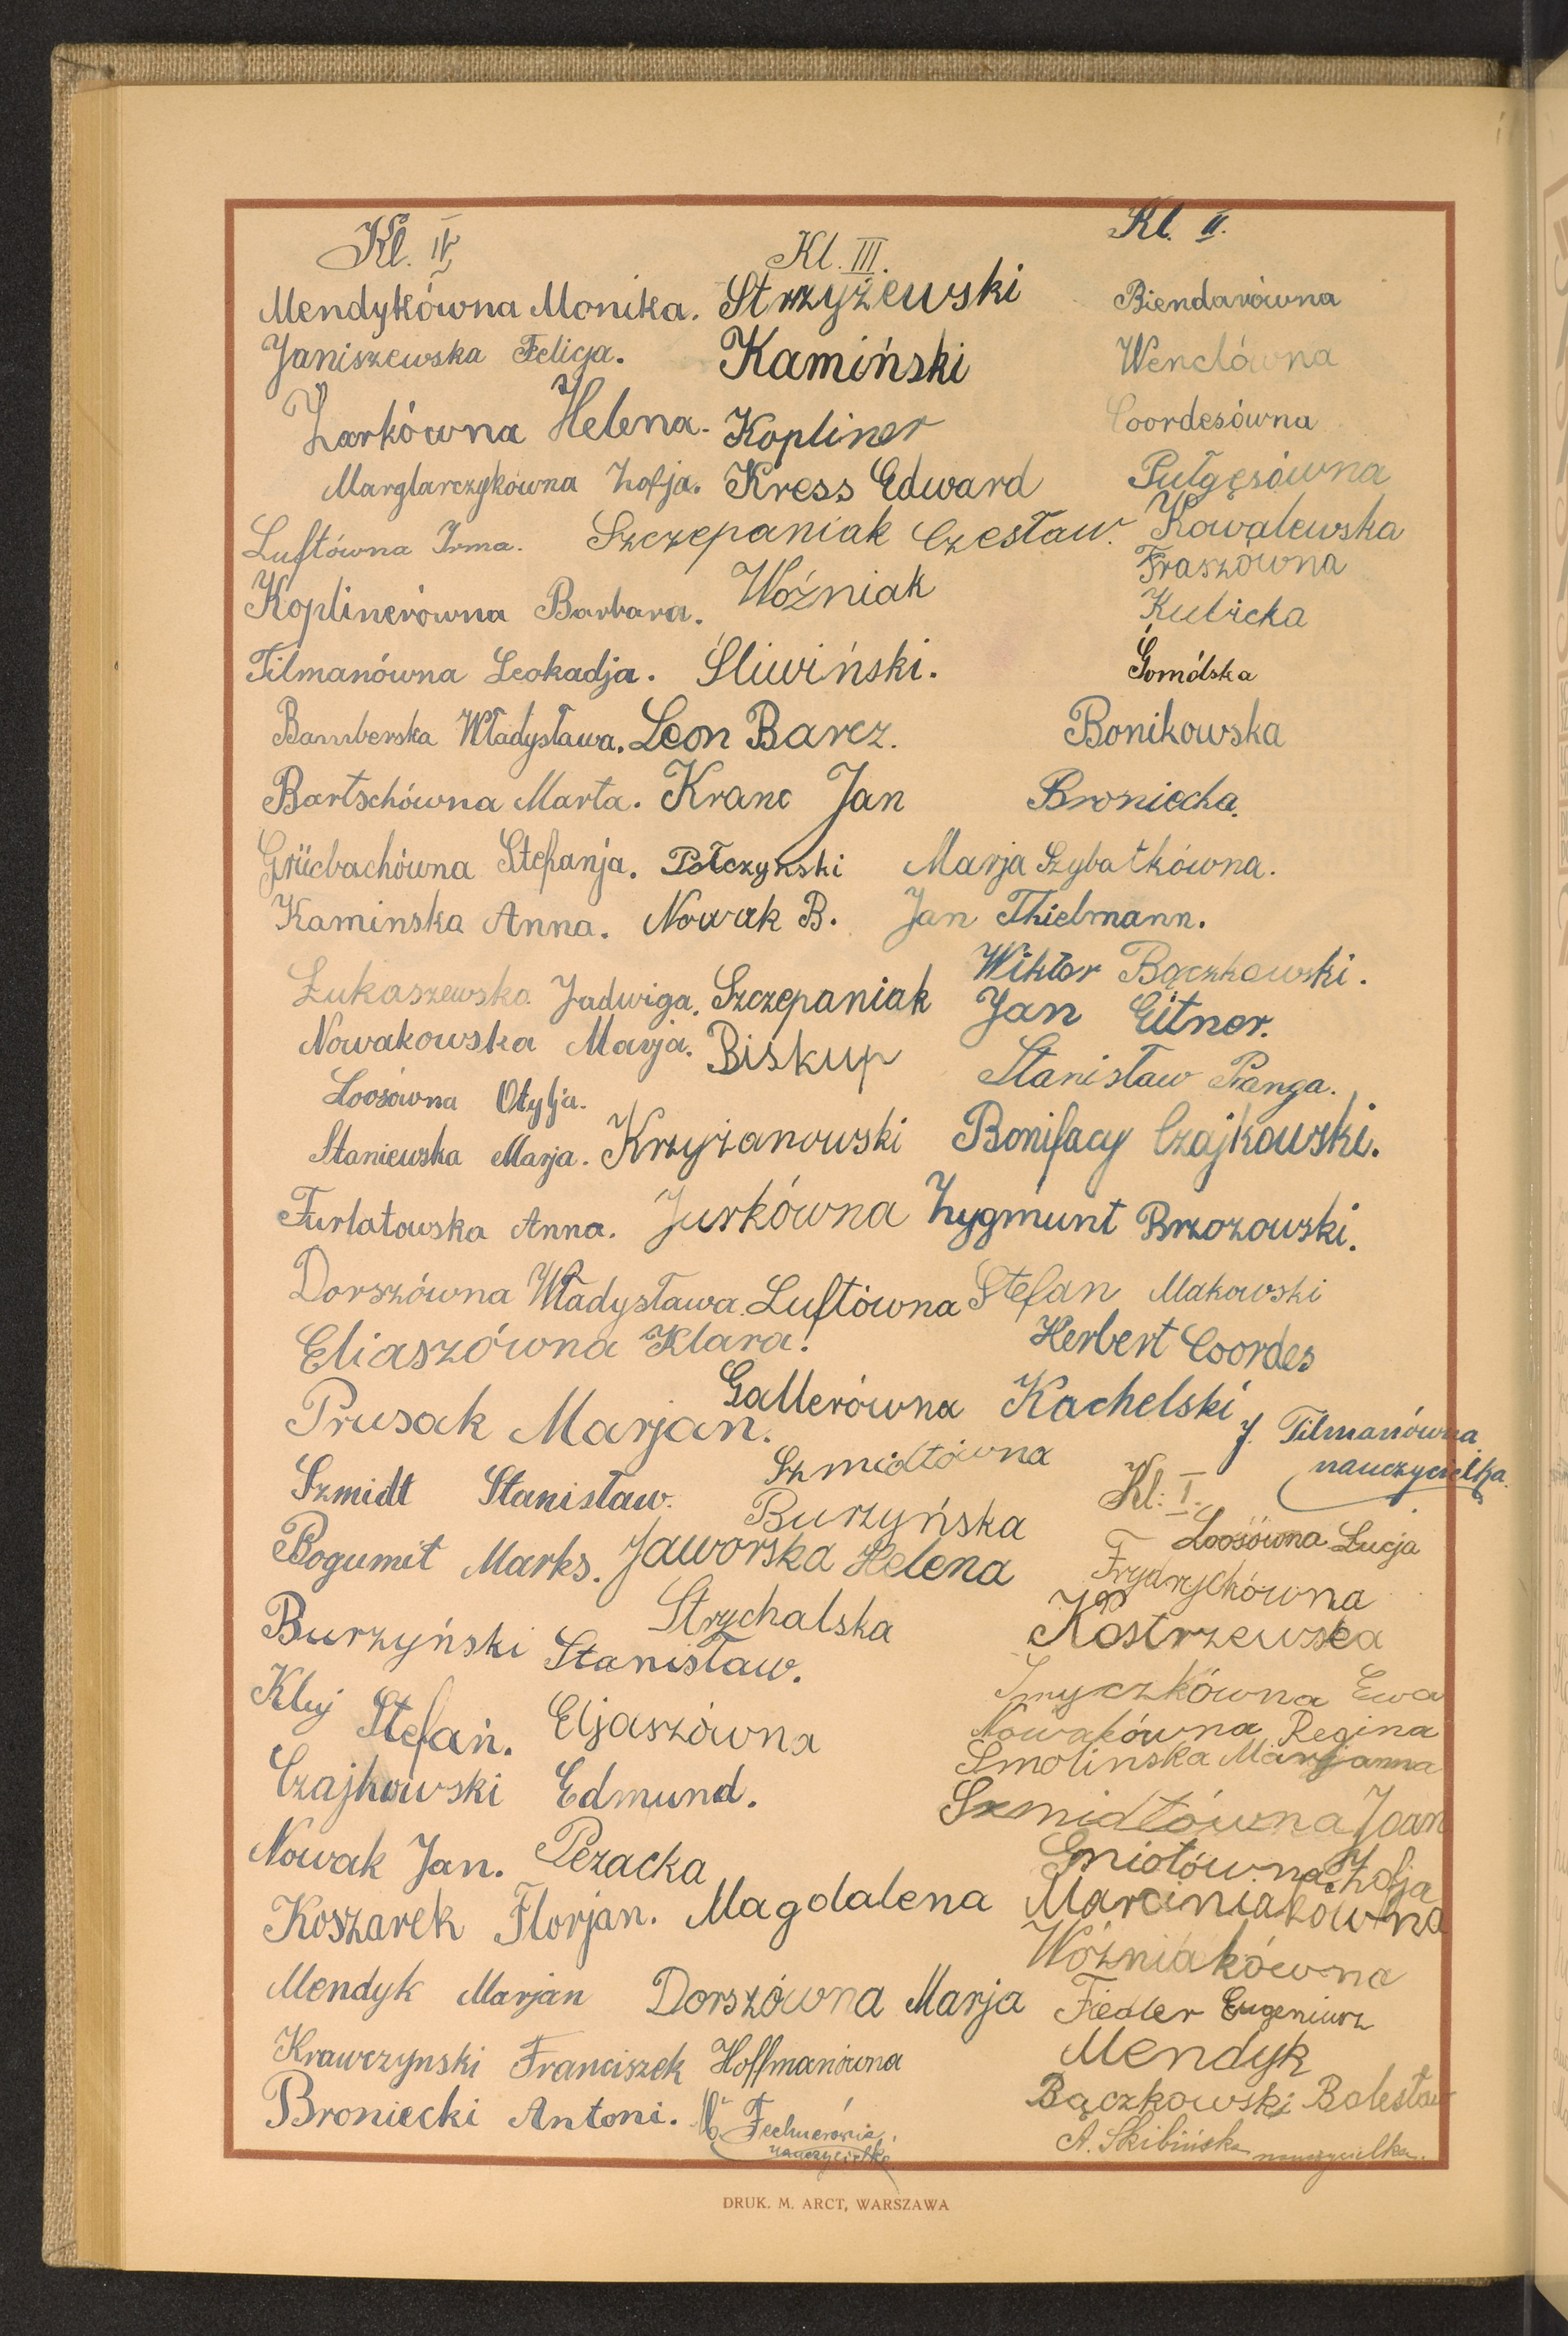 Kl. IV
Mendykówna Monika.
Janiszewska Felicja.
Żarkówna Helena.
Marglarczykówna Zofja.
Luftówna Irma.
Koplinerówna Barbara.
Tilmanówna Leokadja.
Bamberska Władysława.
Bartschówna Marta.
Grücbachówna Stefanja.
Kaminska Anna.
Łukaszewska Jadwiga.
Nowakowska Marja.
Loosówna Otylja.
Staniewska Marja.
Furlatowska Anna.
Dorszówna Władysława.
Eliaszówna Klara.
Prusak Marjan.
Szmidt Stanisław.
Bogumił Marks.
Burzyński Stanisław.
Kluj Stefan.
Czajkowski Edmund.
Nowak Jan.
Koszarek Florjan.
Mendyk Marjan
Krawczynski Franciszek
Broniecki Antoni.
Kl. III.
Strzyżewski
Kamiński
Kopliner
Kress Edward
Szczepaniak Czesław.
Woźniak
Śliwiński.
Leon Barcz.
Kranc Jan
Połczynski
Nowak B.
Szczepaniak
Biskup
Krzyżanowski
Jurkówna
Luftówna
Gallerówna
Szmidtówna
Burzyńska
Jaworska Helena
Strychalska
Eljaszówna
Pezacka
Magdalena Marciniakówna
Dorszówna Marja
Hoffmanówna
nauczycielka
Kl. II.
Biendarówna
Wenclówna
Coordesówna
Pułgęsówna
Kowalewska
Fraszówna
Kubicka
Gomólska
Bonikowska
Broniecka.
Marja Szybatkówna.
Jan Thielmann.
Wiktor Bączkowski.
Jan Eitner.
Stanisław Pranga.
Bonifacy Czajkowski.
Zygmunt Brzozowski.
Stefan Makowski
Herbert Coordes
Kachelski
J. Tilmanówna
nauczycielka.
Kl. I.
Loosówna Łucja
Frydrychówna
Kostrzewska
Nowakówna Regina
Smolinska Marjanna
Szmidtówna Joan
Gniotówna Zofja
Woźniakówna
Fiedler Eugeniusz
Mendyk
Bączkowski Bolesław
A. Skibińska nauczycielka.
DRUK. M. ARCT, WARSZAWA